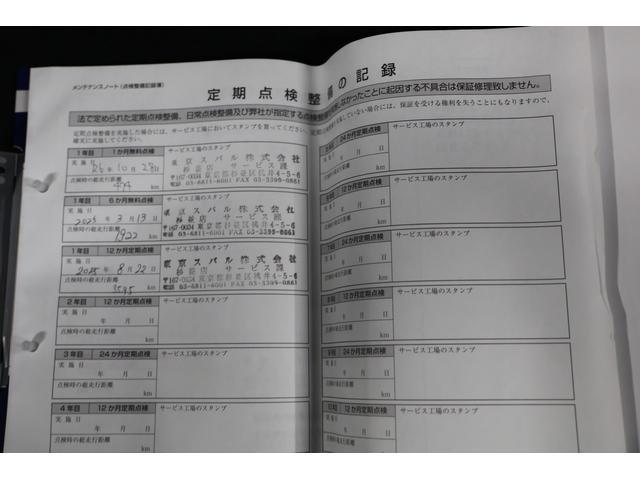 メンテナンスノート（点検整備記録簿）
定期点検整備の記録
法で定められた定期点検整備、日常点検整備及び弊社が指定する点検整備
しなかったことに起因する不具合は保証修理致しません。
定期点検整備を実施した場合には、サービス工場においてスタンプを貰ってください。
確実に実施してください。
していない場合には、保証を受ける権利を失うことにもなりますので、
1年目 1か月無料点検
サービス工場のスタンプ
実施日
年10月28日
東京スバル株式会社
杉並店 サービス課
〒167-0034 東京都杉並区桃井4-5-6
電話 03-6811-6001 FAX 03-3399-0861
点検時の総走行距離
km
1年目 6か月無料点検
サービス工場のスタンプ
実施日
2025年3月13日
東京スバル株式会社
杉並店 サービス課
〒167-0034 東京都杉並区桃井4-5-6
電話 03-6811-6001 FAX 03-3399-0861
点検時の総走行距離
1922 km
1年目 12か月定期点検
サービス工場のスタンプ
実施日
2025年8月22日
東京スバル株式会社
杉並店 サービス課
〒167-0034 東京都杉並区桃井4-5-6
電話 03-6811-6001 FAX 03-3399-0861
点検時の総走行距離
km
2年目 12か月定期点検
サービス工場のスタンプ
実施日
年 月 日
点検時の総走行距離
km
3年目 24か月定期点検
サービス工場のスタンプ
実施日
年 月 日
点検時の総走行距離
km
4年目 12か月定期点検
サービス工場のスタンプ
実施日
年 月 日
点検時の総走行距離
km
24か月定期点検
サービス工場のスタンプ
年 月 日
総走行距離
km
12か月定期点検
サービス工場のスタンプ
年 月 日
総走行距離
km
24か月定期点検
サービス工場のスタンプ
年 月 日
点検時の総走行距離
km
12か月定期点検
サービス工場のスタンプ
年 月 日
点検時の総走行距離
km
24か月定期点検
サービス工場のスタンプ
年 月 日
点検時の総走行距離
km
12か月定期点検
サービス工場のスタンプ
年 月 日
点検時の総走行距離
km